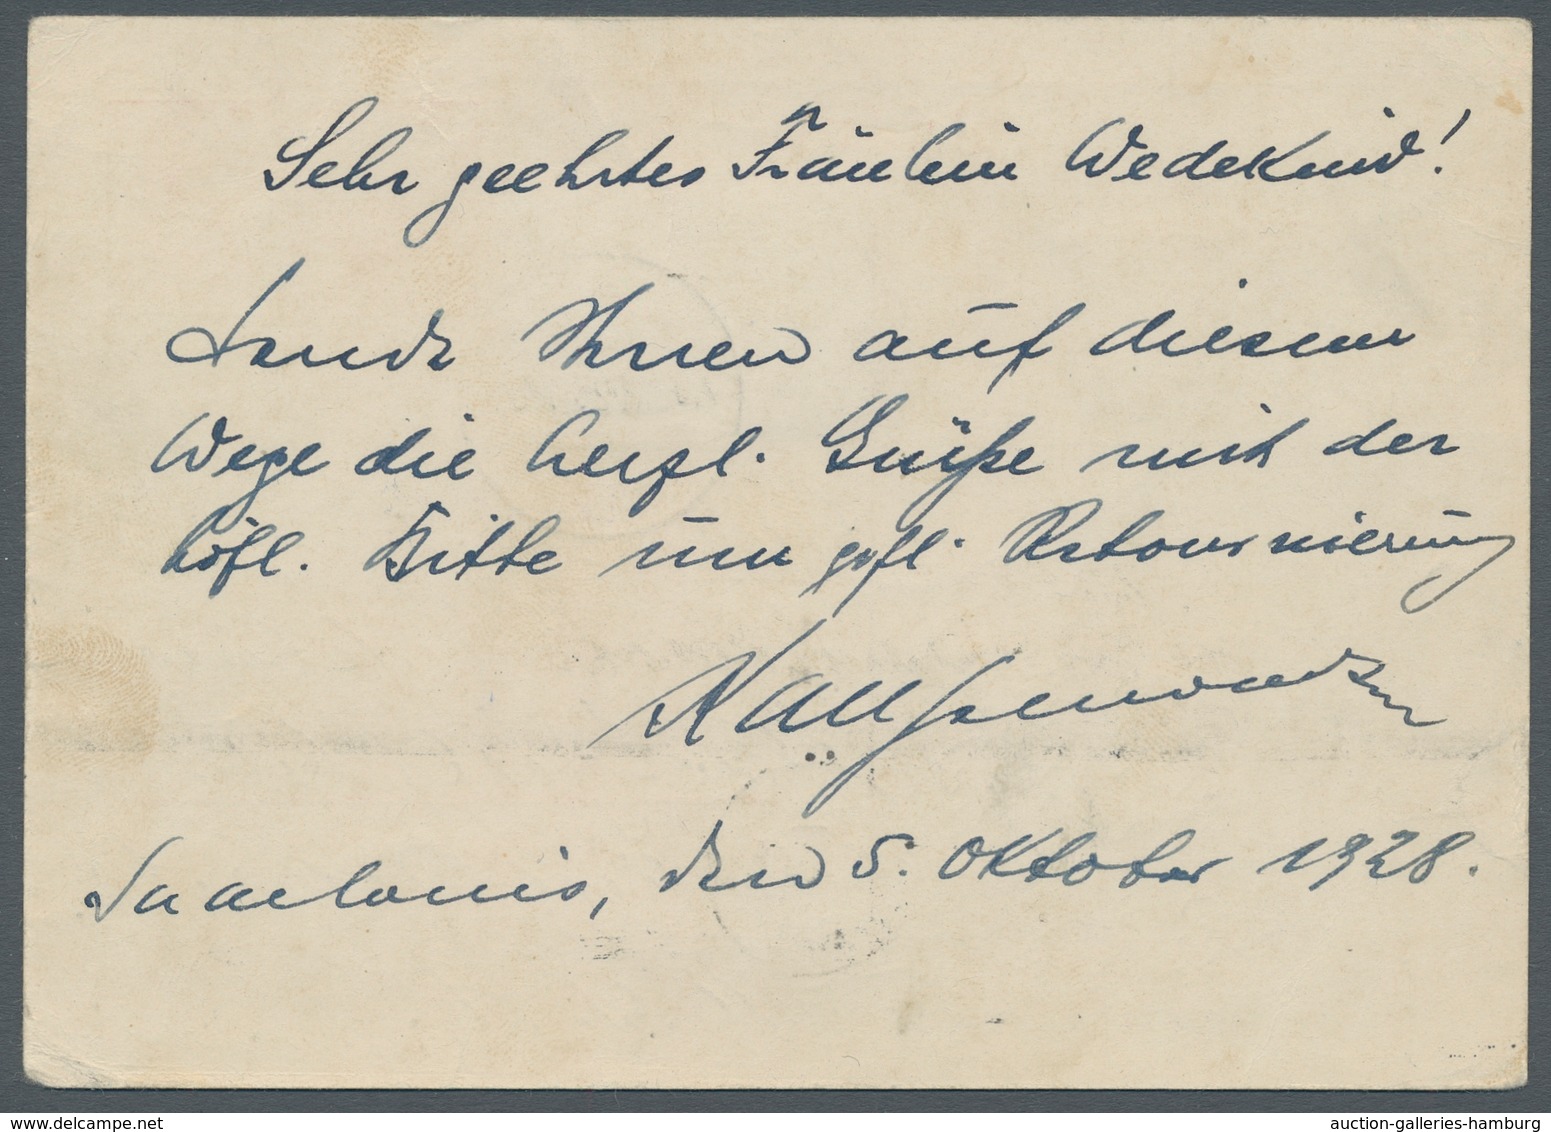 Sehr geehrtes Fräulein Wedekind!
Sende Ihnen auf diesem
Wege die herzl. Grüße mit der
höfl. Bitte um gefl. Retournierung
Saarlouis, den 5. Oktober 1928.
www.delcampe.net
auction-galleries-hamburg